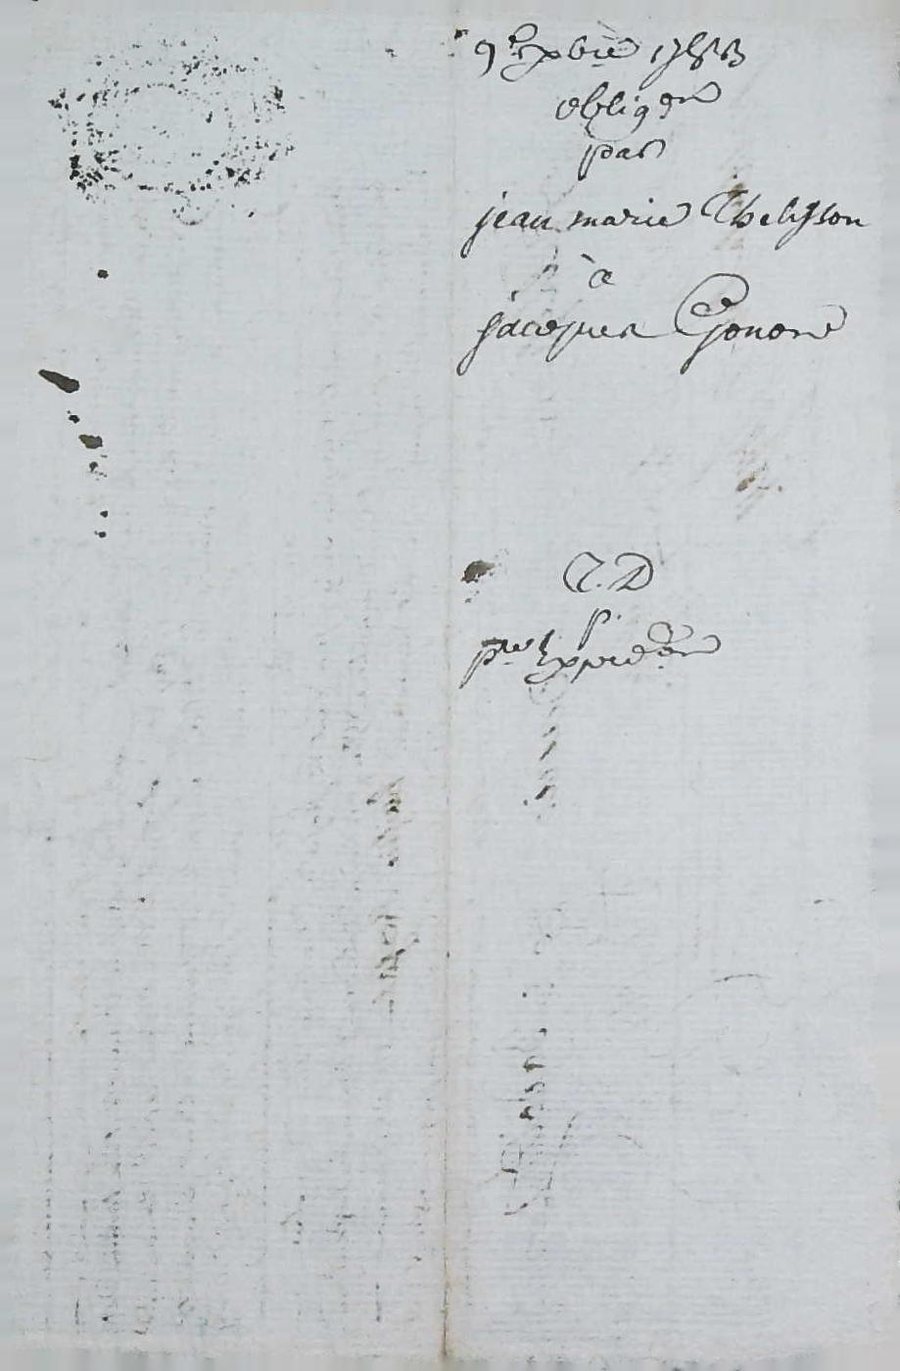 9 Xbre 1783
obligon
par
jean marie Thelisson
à
jacques Gonon
C. D
p.
pre Expedon